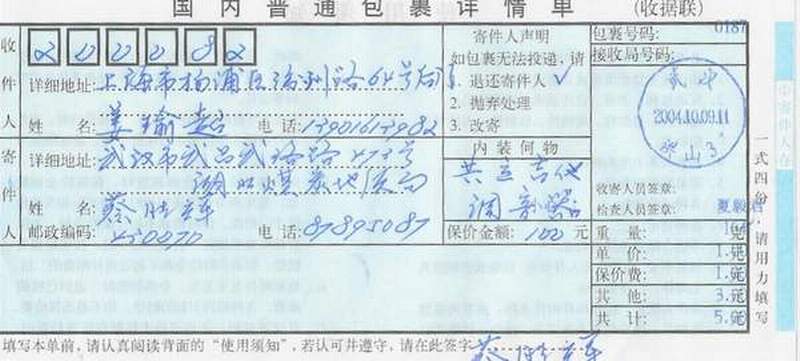 国内普通包裹详情单 (收据联)
0187
收件人 200082
详细地址:上海市杨浦区 路64号
姓 名:姜瑜 电话:13901613982
寄件人 详细地址:武汉市武昌武珞路
湖北煤炭地质局
姓 名:蔡
邮政编码:430070 电话:87895087
寄件人声明
如包裹无法投递,请
1. 退还寄件人 ✓
2. 抛弃处理
3. 改寄
内装何物
共立吉他
调音器
保价金额:100 元
包裹号码:
接收局号码:
武汉
2004.10.09.11
收寄人员签章:
检查人员签章: 夏毅君
重 量: 克
单 价: 1.元
保价费: 1.元
其 他: 3.元
共 计: 5.元
一式四份,请用力填写
填写本单前,请认真阅读背面的“使用须知”,若认可并遵守,请在此签字 蔡